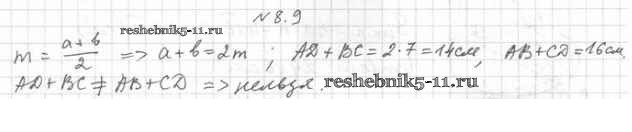 №8.9
reshebnik5-11.ru
m = (a+b)/2 => a+b=2m ; AD+BC=2·7=14см, AB+CD=16см.
AD+BC≠AB+CD => нельзя.
reshebnik5-11.ru